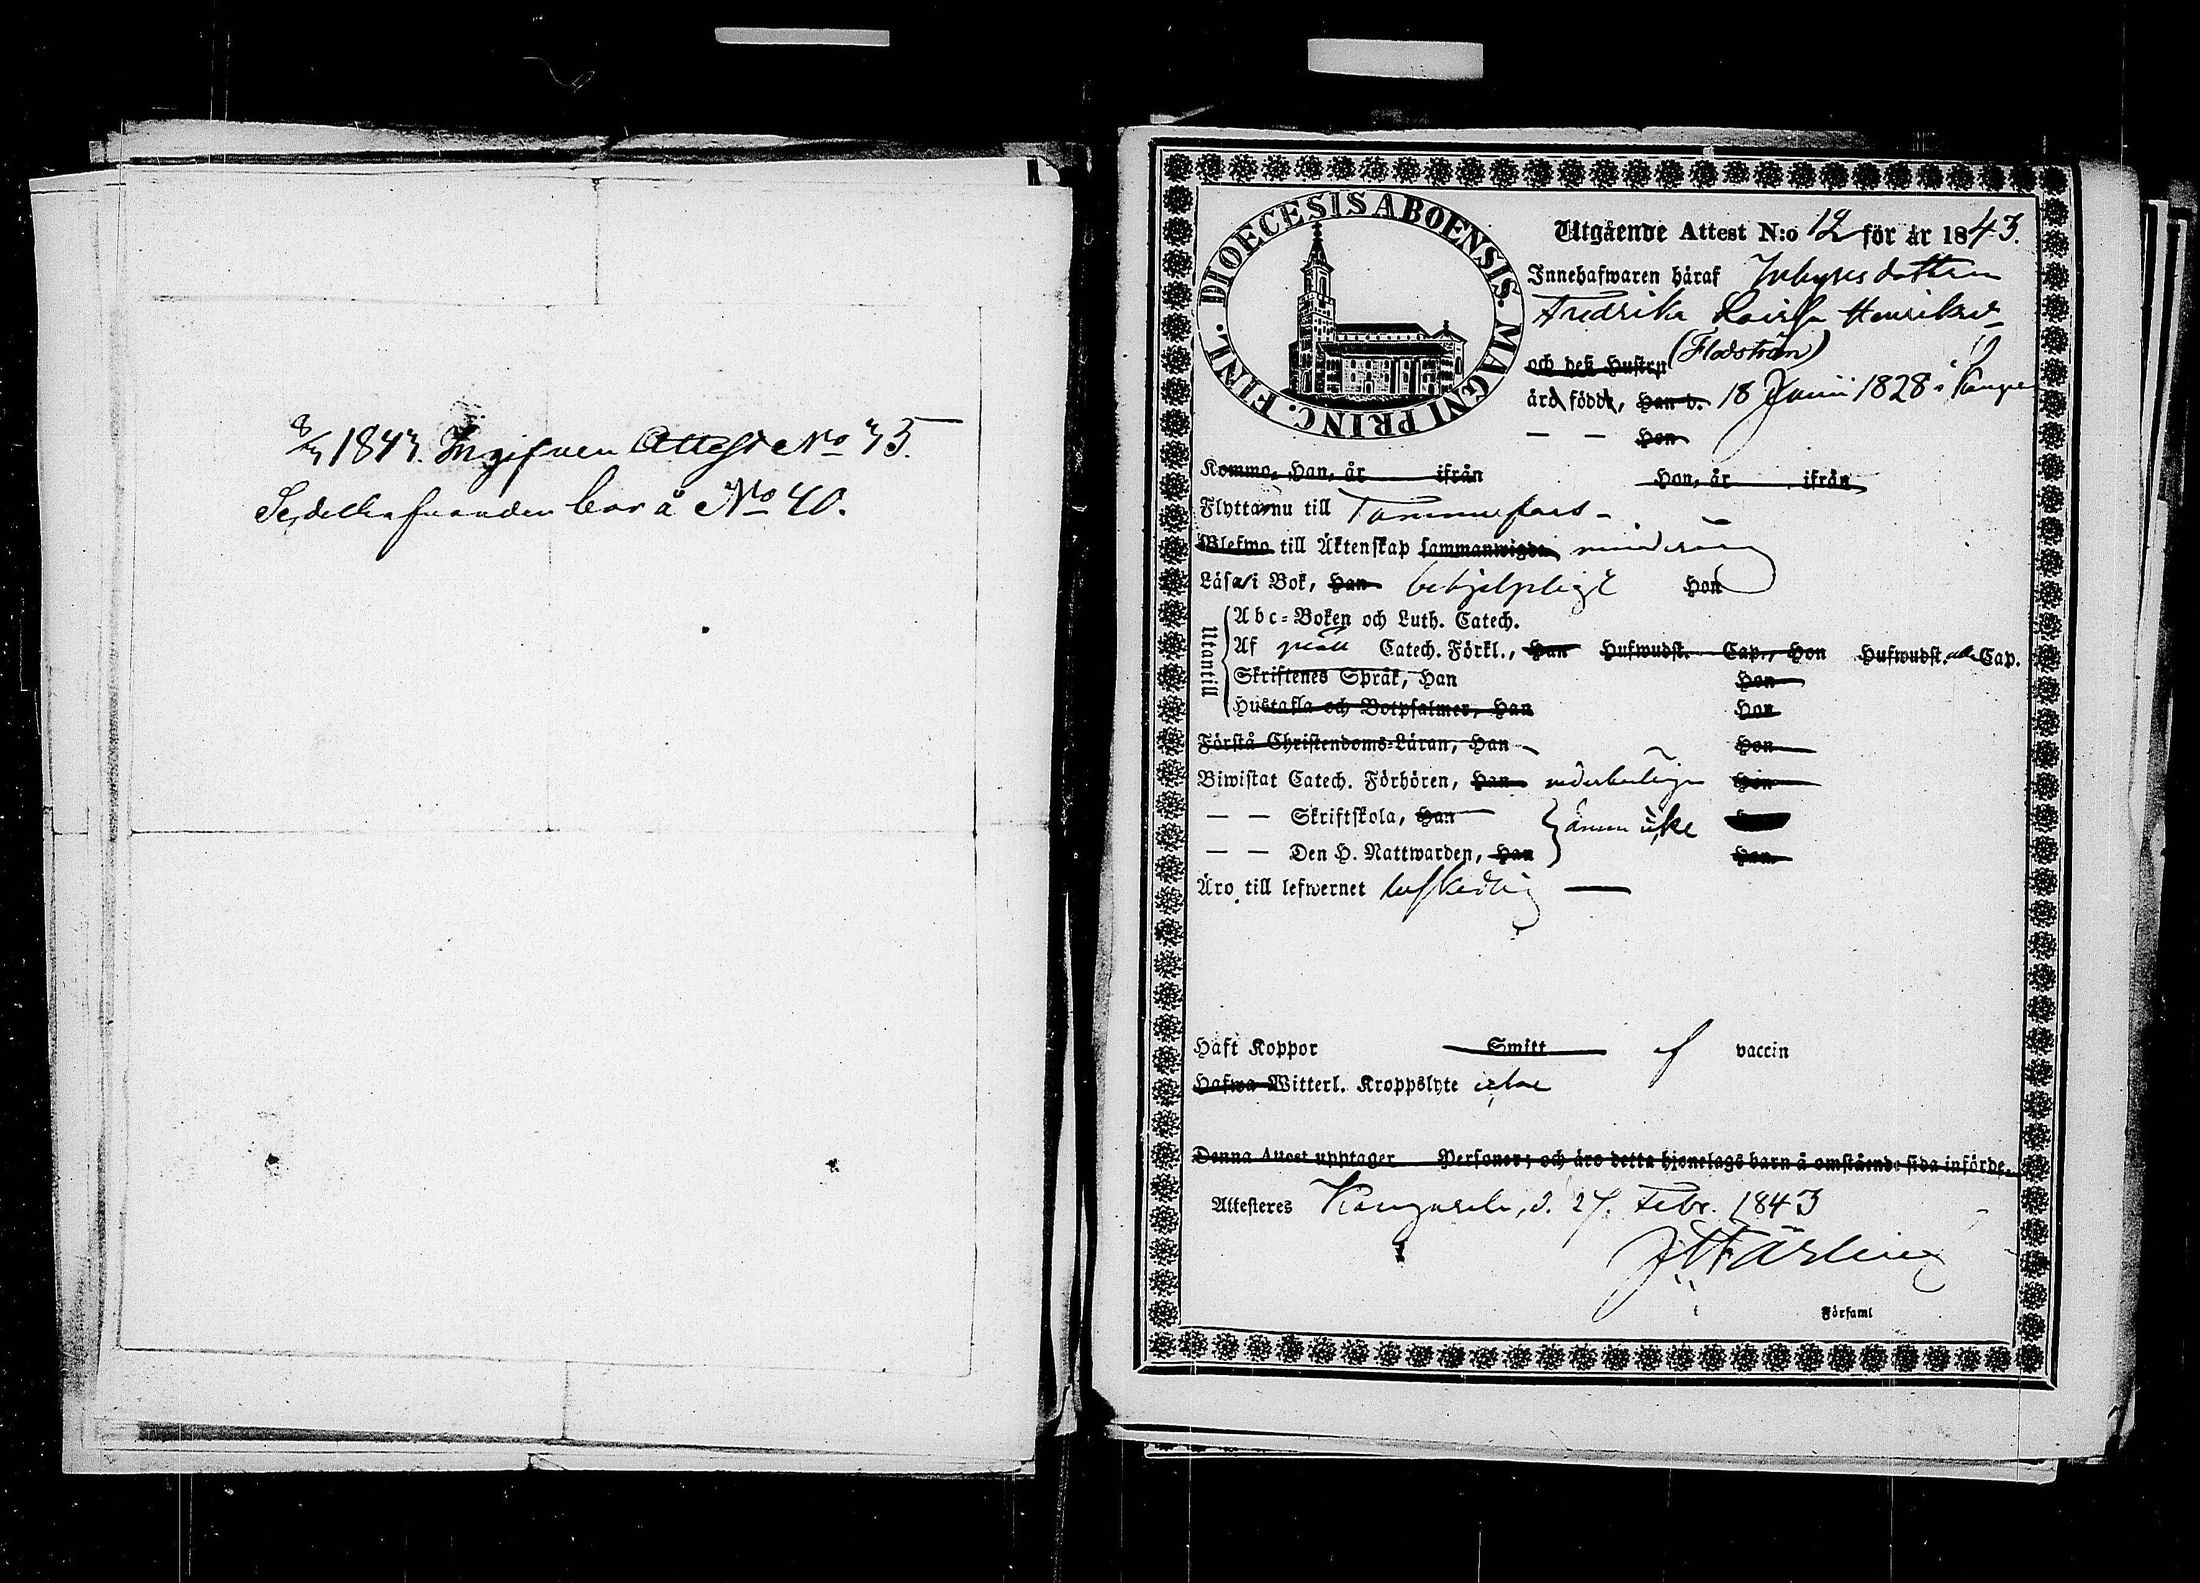 8/3 1843. Ingifven Attest No 35.
Sedelhafvanden bor å No 40.
DIOECESIS ABOENSIS. MAGNI PRINC. FINL.
Utgående Attest N:o 12 för år 1843.
Innehafwaren häraf Inhysesdottren
Fredrika Lovisa Henriksd
och desz Hustru (Flodström)
äro födde, Han d. 18 Junii 1828 i Kangas
— — Hon
Komma, Han, år ifrån Hon, år ifrån
Flytta nu till Tammerfors
Blefwo till Äktenskap sammanwigda minderårig
Läsa i Bok, Han behjelpligt Hon
Utantill
Abc-Boken och Luth. Catech.
Af Catech. Förkl., Han Hufwudst. Cap., Hon Hufwudst. Cap.
Skriftenes Språk, Han Hon
Hustafla och Botpsalmer, Han Hon
Förstå Christendoms-Läran, Han Hon
Biwistat Catech. Förhören, Han vederbörligen Hon
— — Skriftskola, Han ännu icke
— — Den H. Nattwarden, Han Hon
Äro till lefwernet beskedlig
Haft Koppor Smitt af vaccin
Hafwa Witterl. Kroppslyte icke
Denna Attest upptager Personer; och äro detta hjonelags barn å omstående sida införde.
Attesteres Kangasala, d. 27. Febr. 1843
i Församl